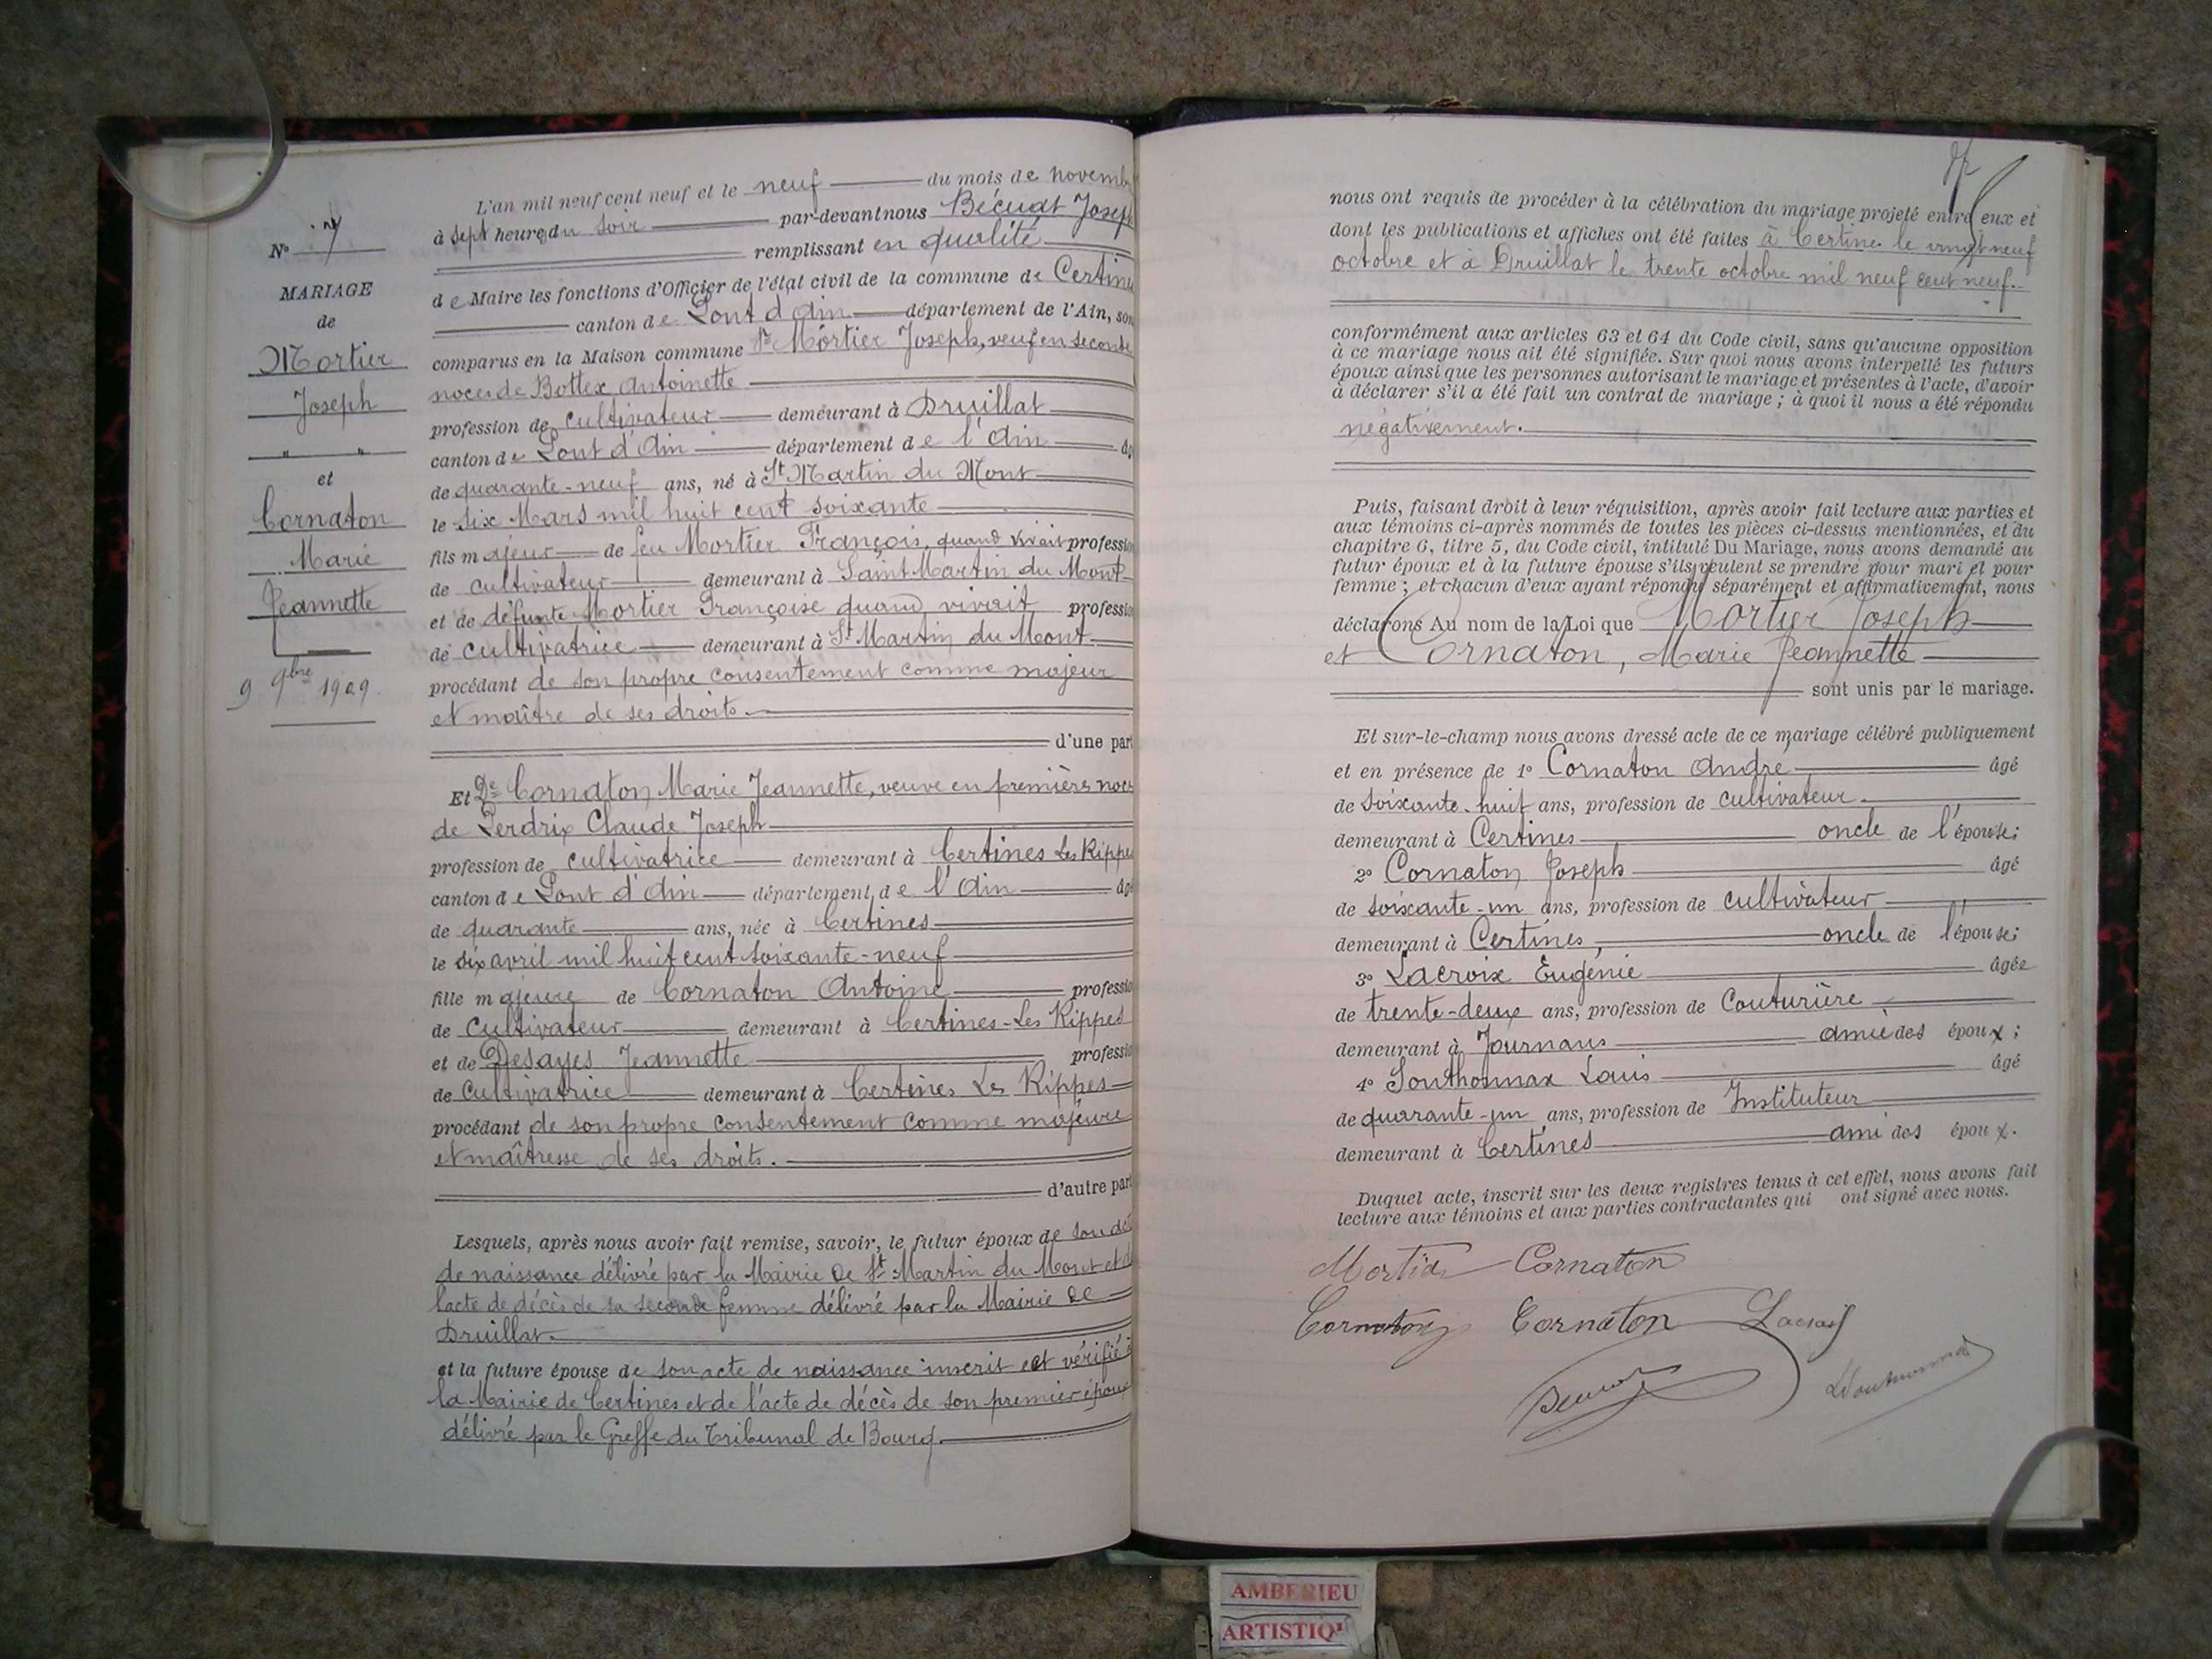 N° 7
MARIAGE
de
Mortier
Joseph
" "
et
Cornaton
Marie
Jeannette
9 9bre 1909.
L'an mil neuf cent neuf et le neuf du mois de novemb
à sept heures du soir par-devant nous Bécuat Joseph
remplissant en qualité
de Maire les fonctions d'Officier de l'état civil de la commune de Certines
canton de Pont d'Ain département de l'Ain, son
comparus en la Maison commune Sr Mortier Joseph, veuf en seconde
noces de Bottex Antoinette
profession de cultivateur demeurant à Druillat
canton de Pont d'Ain département de l'Ain âg
de quarante-neuf ans, né à St Martin du Mont
le six Mars mil huit cent soixante
fils majeur de feu Mortier François, quand vivait professio
de cultivateur demeurant à Saint Martin du Mont
et de défunte Mortier Françoise quand vivait professio
de cultivatrice demeurant à St Martin du Mont
procédant de son propre consentement comme majeur
et maître de ses droits.
d'une part
Et De Cornaton Marie Jeannette, veuve en premières noces
de Perdrix Claude Joseph
profession de cultivatrice demeurant à Certines Les Rippes
canton de Pont d'Ain département de l'Ain âgé
de quarante ans, née à Certines
le six avril mil huit cent soixante-neuf
fille majeure de Cornaton Antoine professio
de cultivateur demeurant à Certines-Les Rippes
et de Desayes Jeannette professio
de Cultivatrice demeurant à Certines Les Rippes
procédant de son propre consentement comme majeure
et maîtresse de ses droits.
d'autre part
Lesquels, après nous avoir fait remise, savoir, le futur époux de son act
de naissance délivré par la Mairie de St Martin du Mont et d
l'acte de décès de sa seconde femme délivré par la Mairie de
Druillat.
et la future épouse de son acte de naissance inscrit et vérifié à
la Mairie de Certines et de l'acte de décès de son premier époux
délivré par le Greffe du Tribunal de Bourg.
nous ont requis de procéder à la célébration du mariage projeté entre eux et
dont les publications et affiches ont été faites à Certines le vingt neuf
octobre et à Druillat le trente octobre mil neuf cent neuf.
conformément aux articles 63 et 64 du Code civil, sans qu'aucune opposition
à ce mariage nous ait été signifiée. Sur quoi nous avons interpellé les futurs
époux ainsi que les personnes autorisant le mariage et présentes à l'acte, d'avoir
à déclarer s'il a été fait un contrat de mariage ; à quoi il nous a été répondu
négativement.
Puis, faisant droit à leur réquisition, après avoir fait lecture aux parties et
aux témoins ci-après nommés de toutes les pièces ci-dessus mentionnées, et du
chapitre 6, titre 5, du Code civil, intitulé Du Mariage, nous avons demandé au
futur époux et à la future épouse s'ils veulent se prendre pour mari et pour
femme ; et chacun d'eux ayant répondu séparément et affirmativement, nous
déclarons Au nom de la Loi que Mortier Joseph
et Cornaton, Marie Jeannette
sont unis par le mariage.
Et sur-le-champ nous avons dressé acte de ce mariage célébré publiquement
et en présence de 1° Cornaton André âgé
de soixante-huit ans, profession de cultivateur.
demeurant à Certines oncle de l'épouse;
2° Cornaton Joseph âgé
de soixante-un ans, profession de cultivateur
demeurant à Certines, oncle de l'épouse;
3° Lacroix Eugénie âgée
de trente-deux ans, profession de Couturière
demeurant à Journans amie des époux ;
4° Sonthonnax Louis âgé
de quarante-un ans, profession de Instituteur
demeurant à Certines ami des époux.
Duquel acte, inscrit sur les deux registres tenus à cet effet, nous avons fait
lecture aux témoins et aux parties contractantes qui ont signé avec nous.
Mortier Cornaton
Cornaton Cornaton Lacroix
AMBERIEU
ARTISTIQ